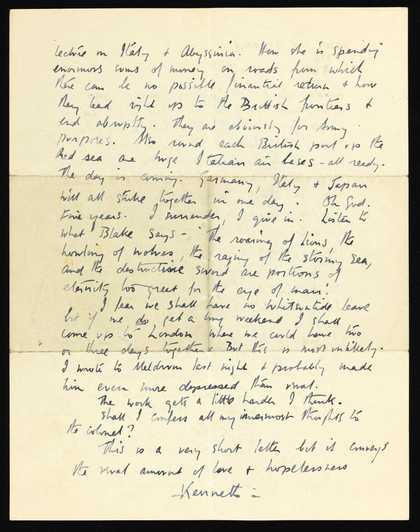 lecture on Italy & Abyssinia. How she is spending
enormous sums of money on roads from which
there can be no possible financial return & how
they lead right up to the British frontiers &
end abruptly. They are obviously for Army
purposes. Also round each British port up the
Red sea are huge Italian air bases - all ready.
The day is coming. Germany, Italy & Japan
will all strike together in one day. Oh God.
Five years. I surrender, I give in. Listen to
what Blake says - "The roaring of lions, the
howling of wolves, the raging of the stormy sea,
and the destructive sword are portions of
eternity too great for the eye of man".
I fear we shall have no Whitsuntide leave
but if we do get a long weekend I shall
come up to London where we could have two
or three days together. But this is most unlikely.
I wrote to Meldrum last night & probably made
him even more depressed than usual.
The work gets a little harder I think.
Shall I confess all my innermost thoughts to
the colonel?
This is a very short letter but it conveys
the usual amount of love & hopelessness
- Kenneth -